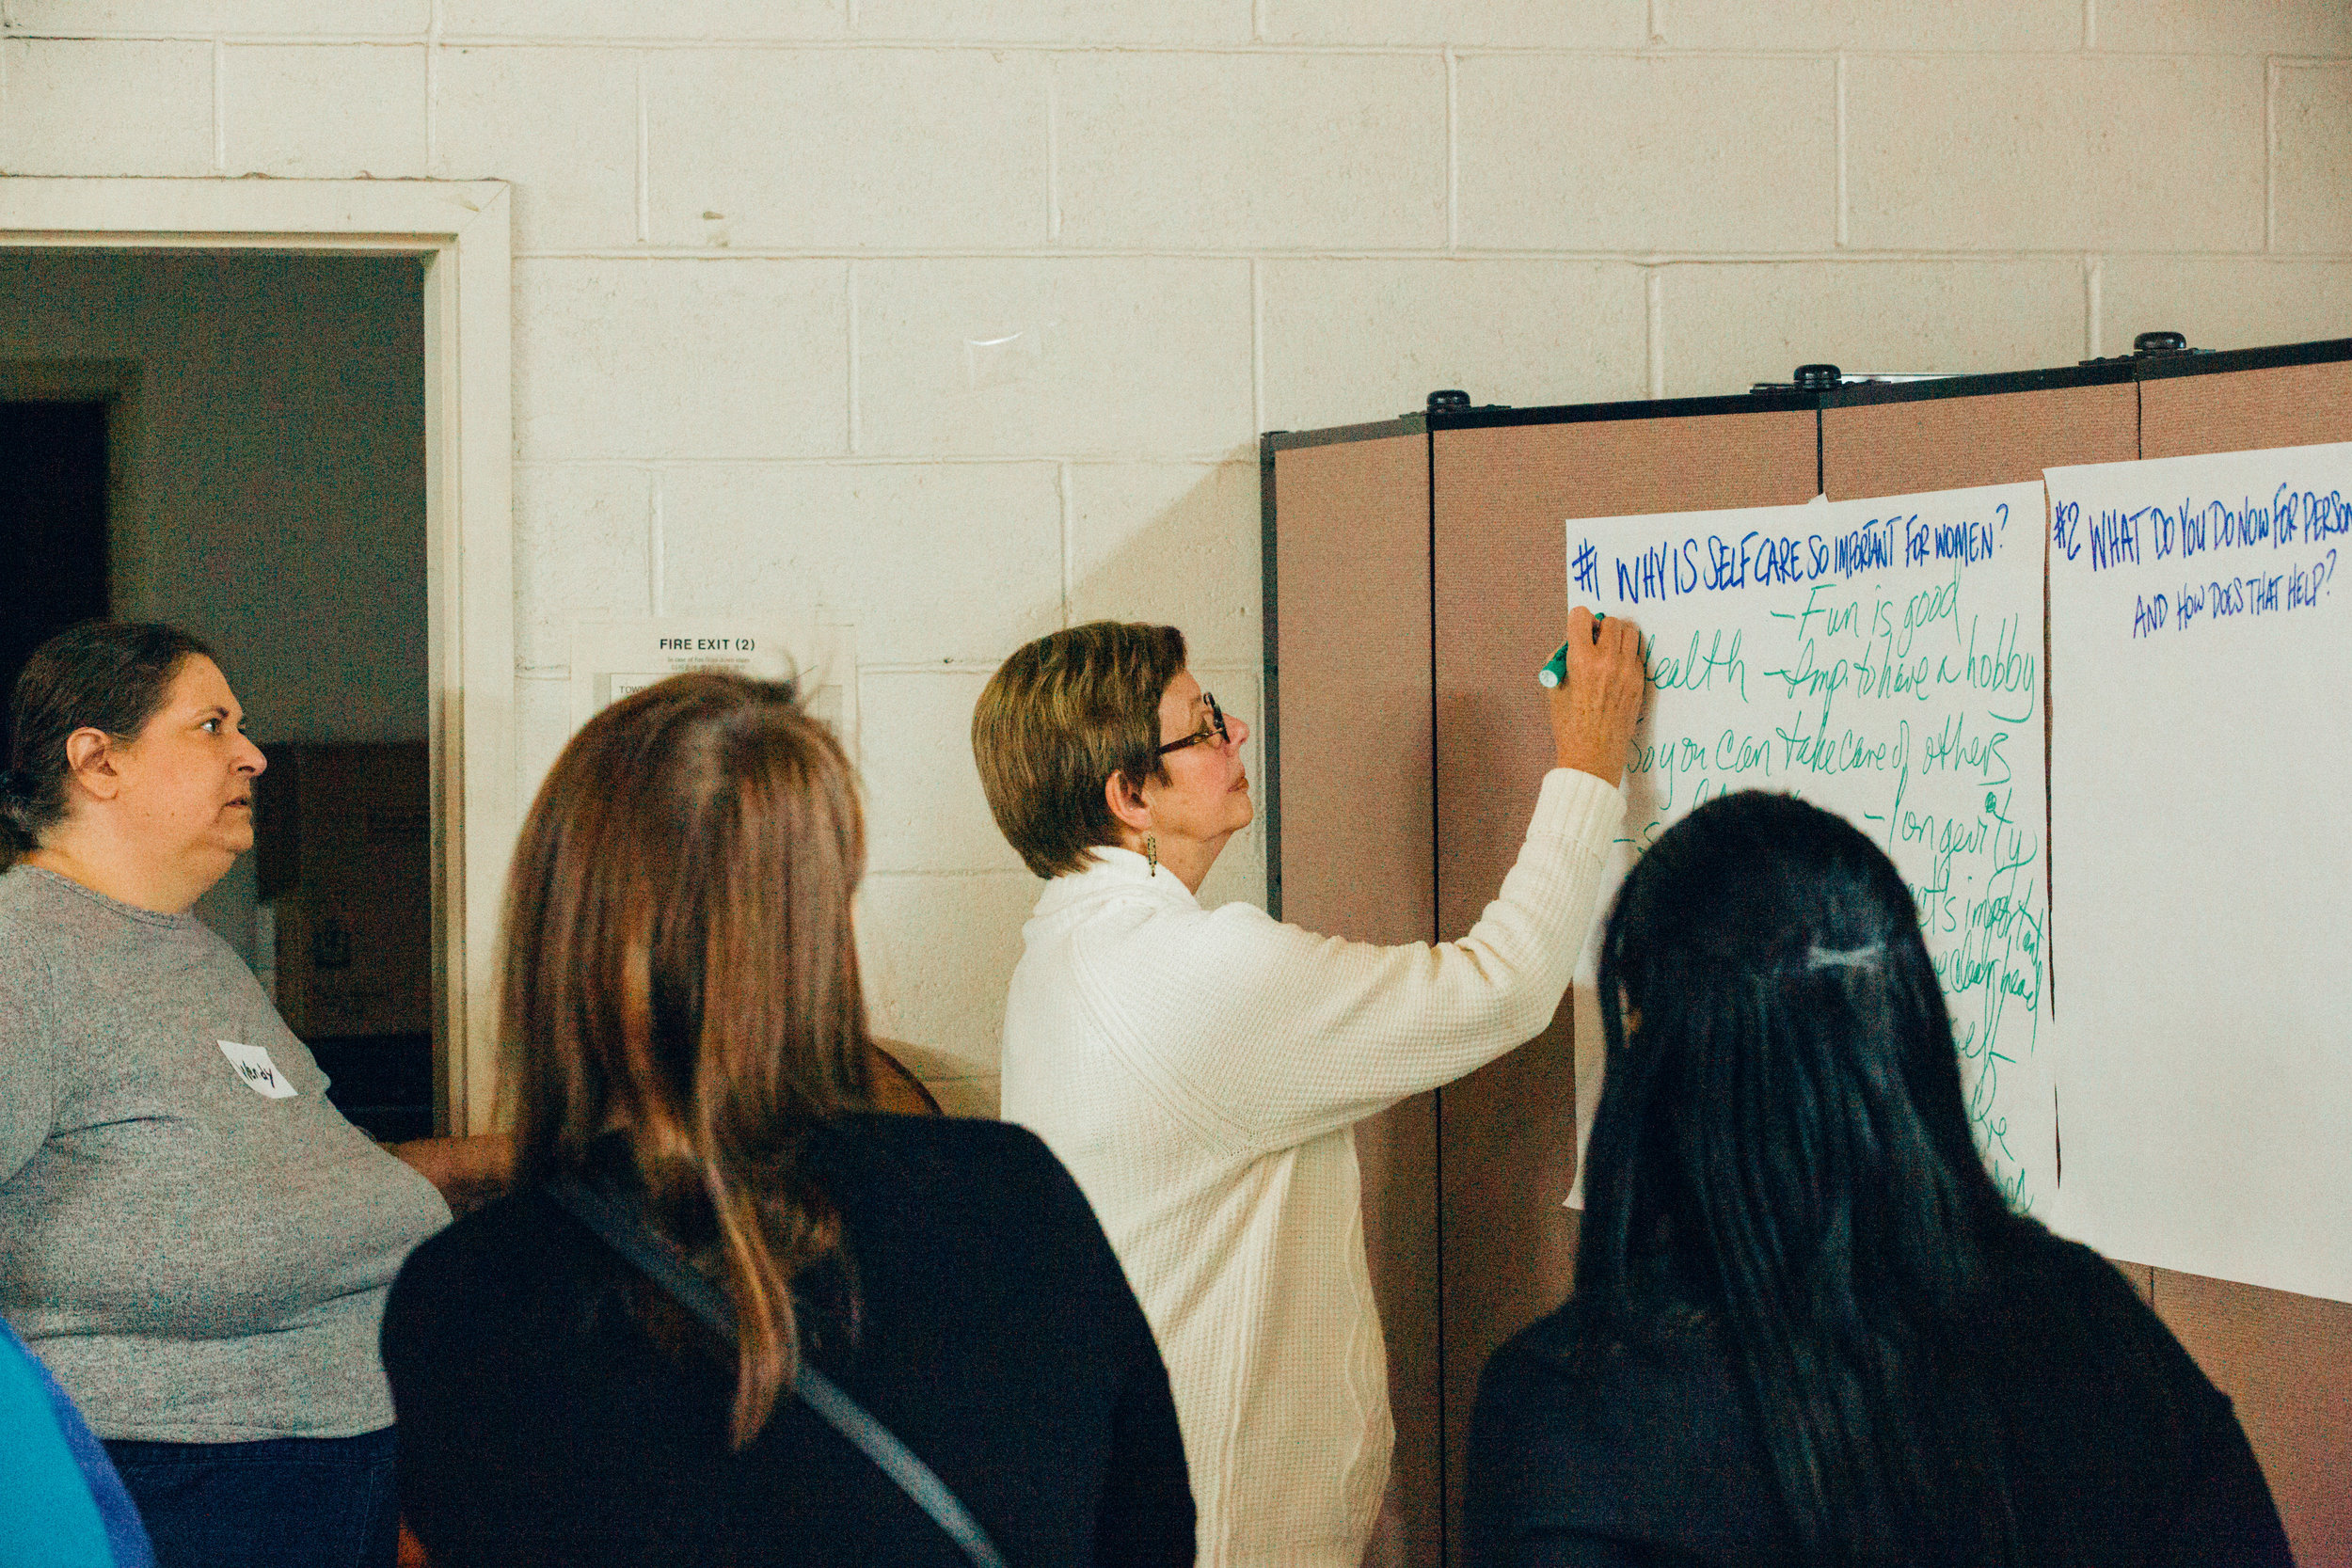 FIRE EXIT (2)
#1 WHY IS SELF CARE SO IMPORTANT FOR WOMEN?
- Fun is good
ealth - Imp. to have a hobby
So you can take care of others
- longevity
important
clear head
self
#2 WHAT DO YOU DO NOW FOR PERSON
AND HOW DOES THAT HELP?
Wendy